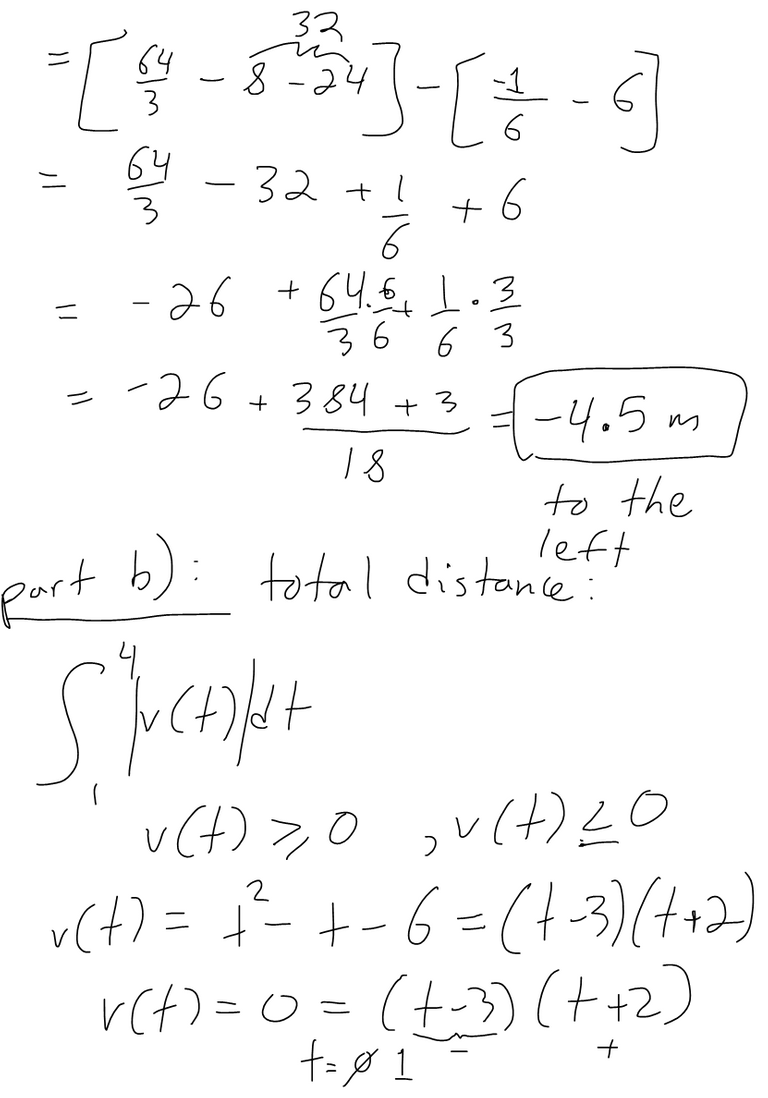 32
= [64/3 - 8 - 24] - [-1/6 - 6]
= 64/3 - 32 + 1/6 + 6
= -26 + 64/3 · 6/6 + 1/6 · 3/3
= -26 + (384 + 3)/18 = -4.5 m
to the
left
part b): total distance:
∫₁⁴ |v(t)| dt
v(t) ≥ 0 , v(t) ≤ 0
v(t) = t² - t - 6 = (t-3)(t+2)
v(t) = 0 = (t-3)(t+2)
t = 0̸ 1 - +